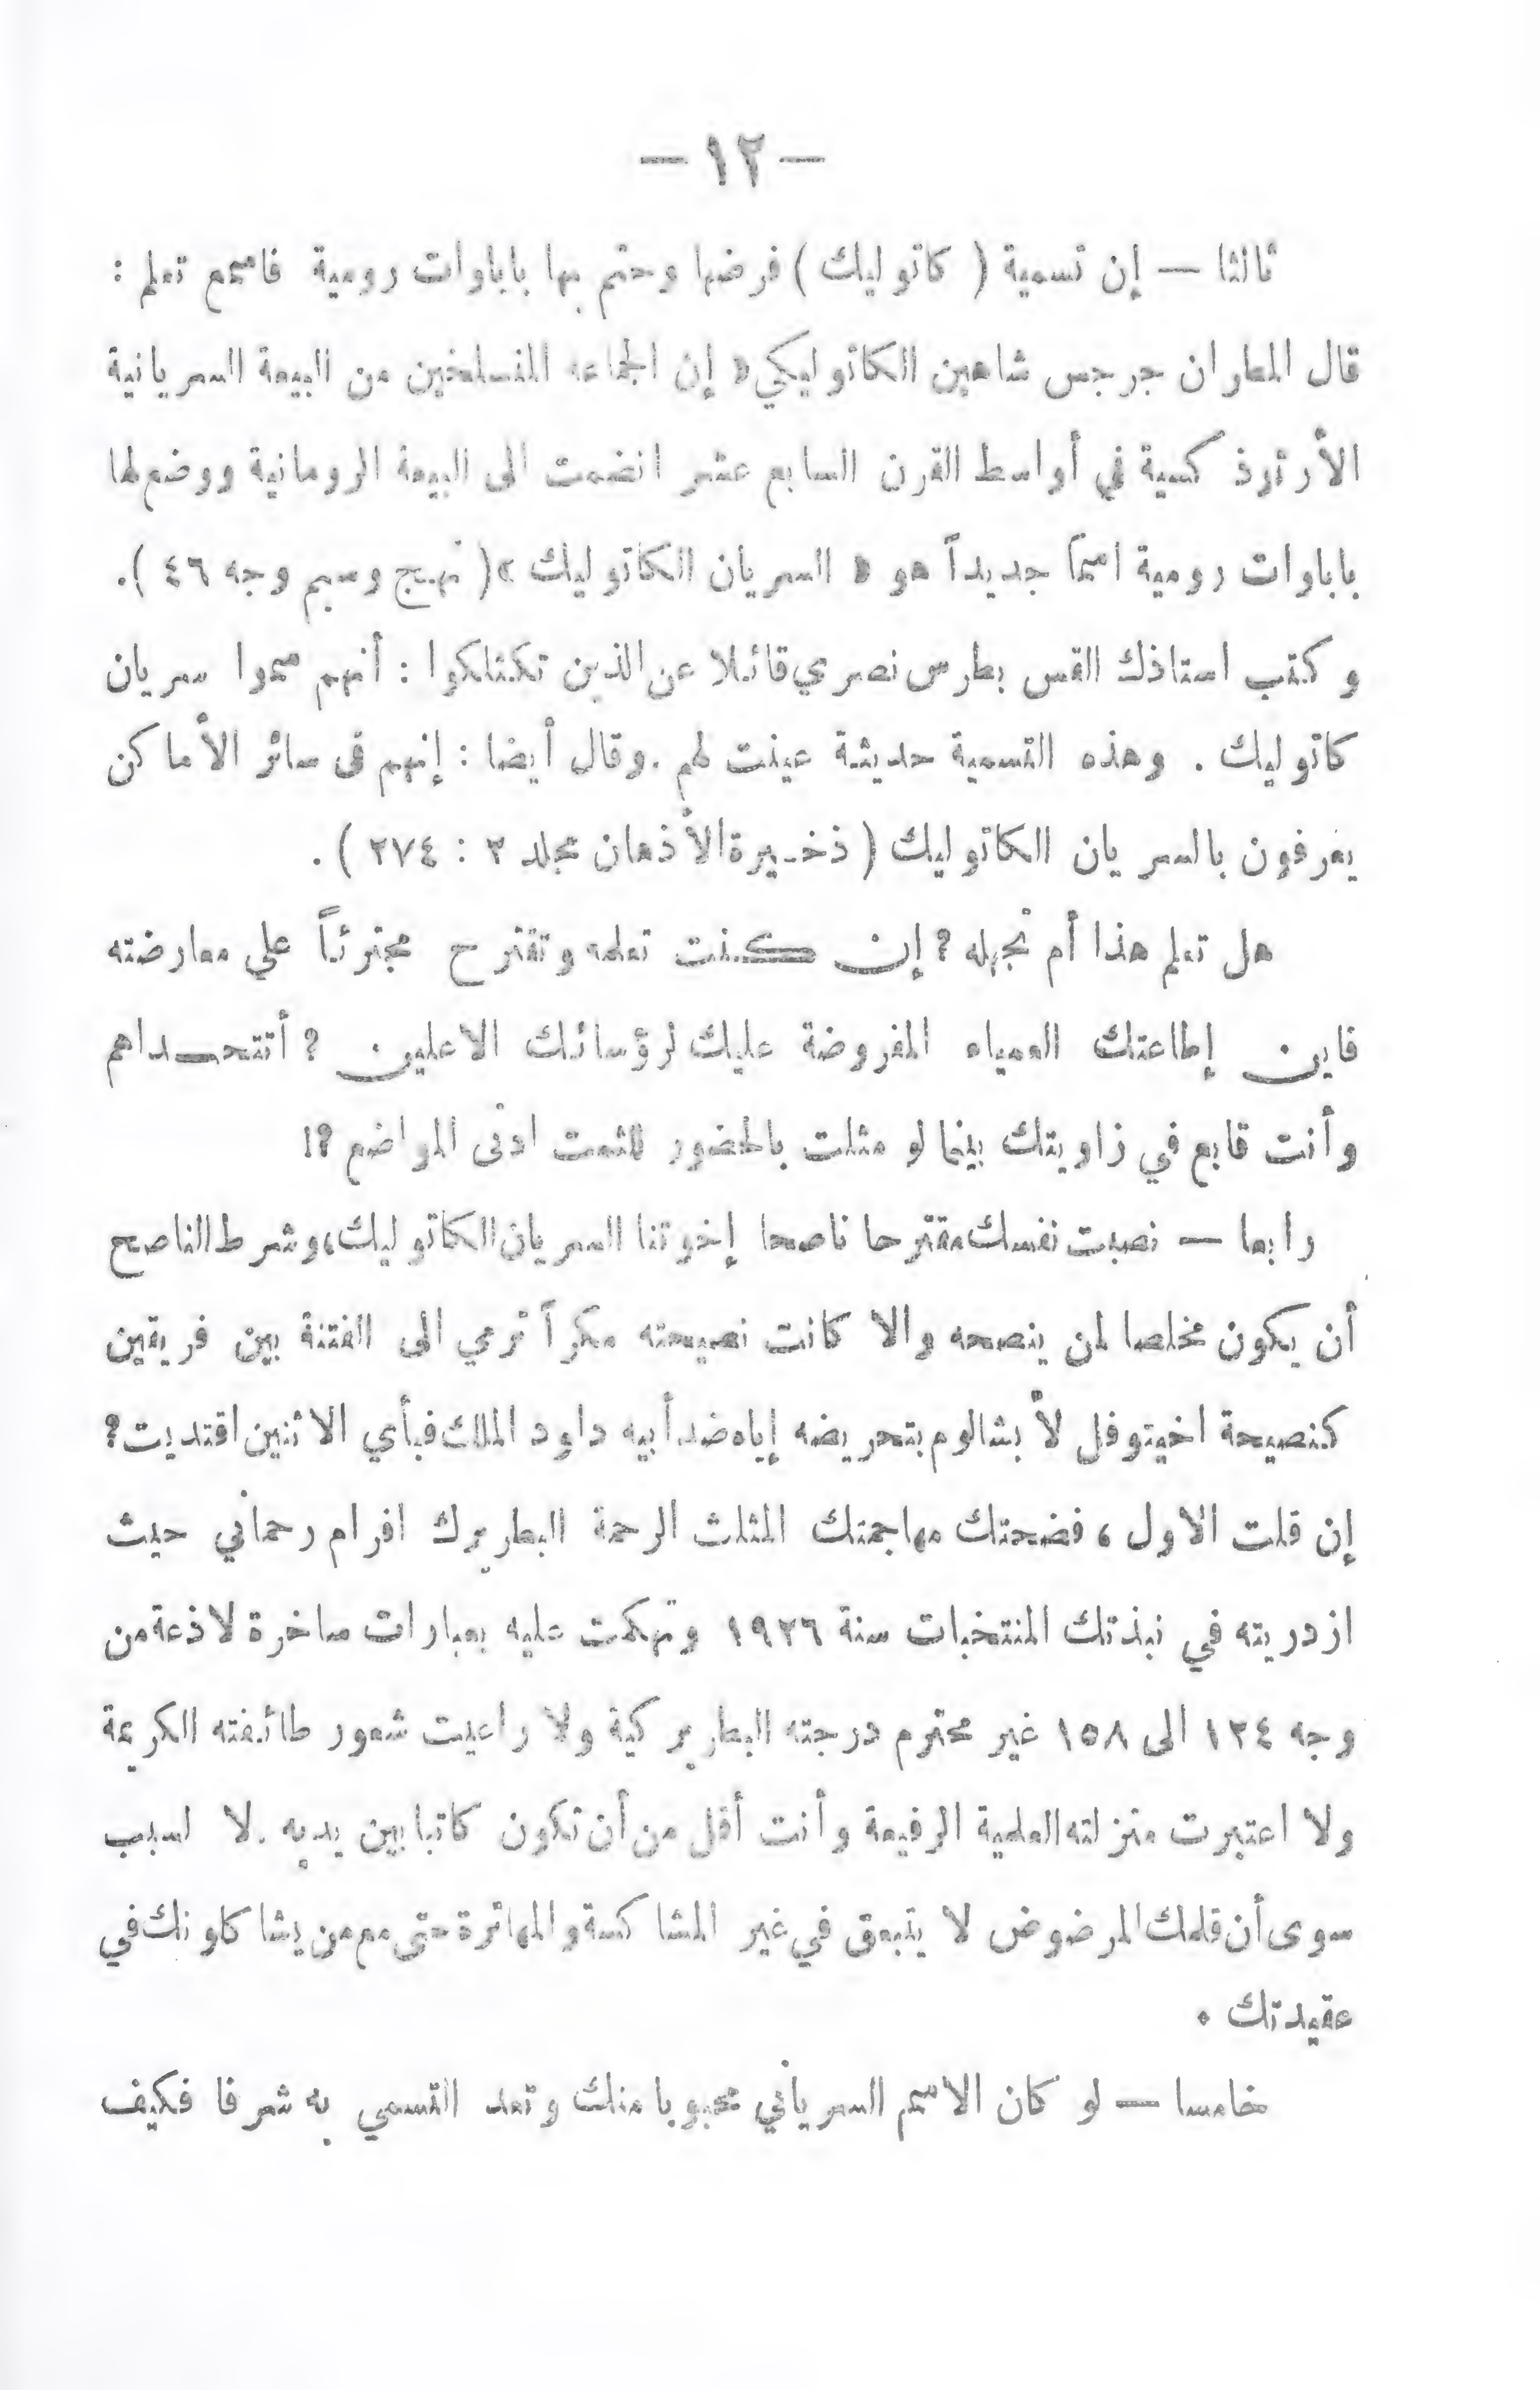 — ١٢ —
ثالثا — إن تسمية ( كاتوليك ) فرضها وحتم بها باباوات رومية فاسمع تعلم :
قال المطران جرجس شاهين الكاتوليكي « إن الجماعه المنسلخين من البيعة السريانية
الأرثوذ كسية في أواسط القرن السابع عشر انضمت الى البيعة الرومانية ووضع لها
باباوات رومية اسمًا جديداً هو « السريان الكاتوليك » ( نهج وسيم وجه ٤٦ ) .
وكتب استاذك القس بطرس نصري قائلا عن الذين تكثلكوا : أنهم سموا سريان
كاتوليك . وهذه التسمية حديثة عينت لهم . وقال أيضا : إنهم فى سائر الأماكن
يعرفون بالسريان الكاتوليك ( ذخـيرة الأذهان مجلد ٢ : ٢٧٤ ) .
هل تعلم هذا أم تجهله ? إن كنت تعلمه وتقترح مجترئاً علي معارضته
فاين إطاعتك العمياء المفروضة عليك لرؤسائك الاعلين ? أتتحـداهم
وأنت قابع في زاويتك بينما لو مثلت بالحضور للثمت ادنى المواضع ?!
رابعا — نصبت نفسك مقترحا ناصحا إخوتنا السريان الكاتوليك، وشرط الناصح
أن يكون مخلصا لمن ينصحه والا كانت نصيحته مكراً ترمي الى الفتنة بين فريقين
كنصيحة اخيتوفل لأبشالوم بتحريضه إياه ضد أبيه داود الملك فبأي الاثنين اقتديت ?
إن قلت الاول ، فضحتك مهاجمتك المثلث الرحمة البطريرك افرام رحماني حيث
ازدريته في نبذتك المنتخبات سنة ١٩٢٦ وتهكمت عليه بعبارات ساخرة لاذعة من
وجه ١٢٤ الى ١٥٨ غير محترم درجته البطريركية ولا راعيت شعور طائفته الكريمة
ولا اعتبرت منزلته العلمية الرفيعة وأنت أقل من أن تكون كاتبا بين يديه . لا لسبب
سوى أن قلمك المرضوض لا يتبعق في غير المشاكسة والمهاترة حتى مع من يشاكلونك في
عقيدتك .
خامسا — لو كان الاسم السرياني محبوبا منك وتعد التسمي به شرفا فكيف